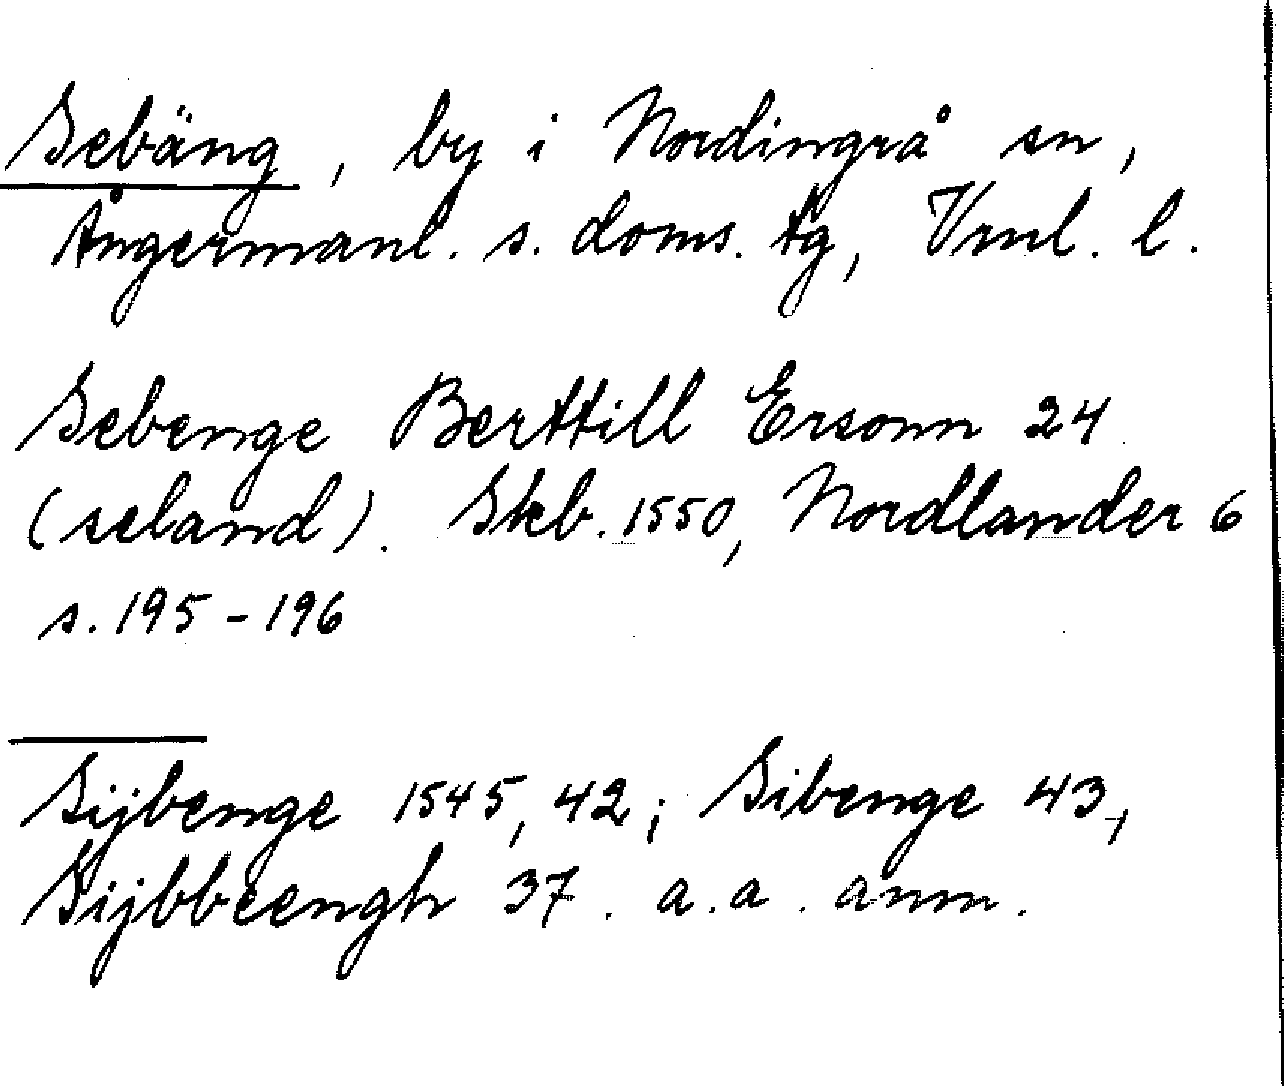 Sebäng, by i Nordingrå sn,
Ångermanl. s. doms. tg, Vrnl. l.
Sebenge Berttill Ersonn 24
(seland). Skb. 1550, Nordlander 6
s. 195-196
Sijbenge 1545, 42; Sibenge 43,
Sijbbeengh 37. a.a. anm.